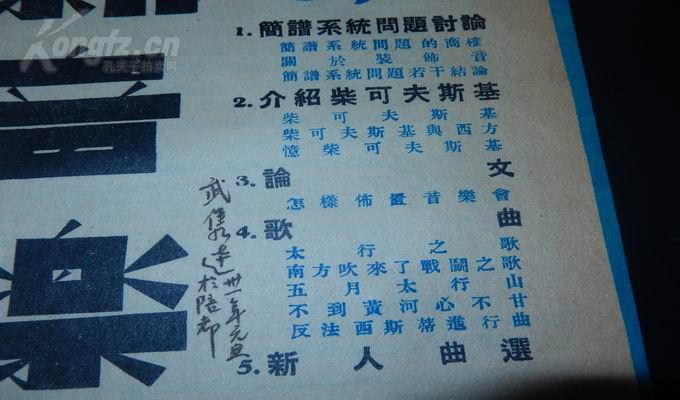 Kongfz.cn
孔夫子拍卖网
音
樂
1. 簡譜系統問題討論
簡譜系統問題的商榷
關於裝飾音
簡譜系統問題若干結論
2. 介紹柴可夫斯基
柴可夫斯基
柴可夫斯基與西方
憶柴可夫斯基
3. 論文
怎樣佈置音樂會
4. 歌曲
太行之歌
南方吹來了戰鬭之歌
五月太行山
不到黃河心不甘
反法西斯蒂進行曲
5. 新人曲選
武
卅一年元旦
於陪都